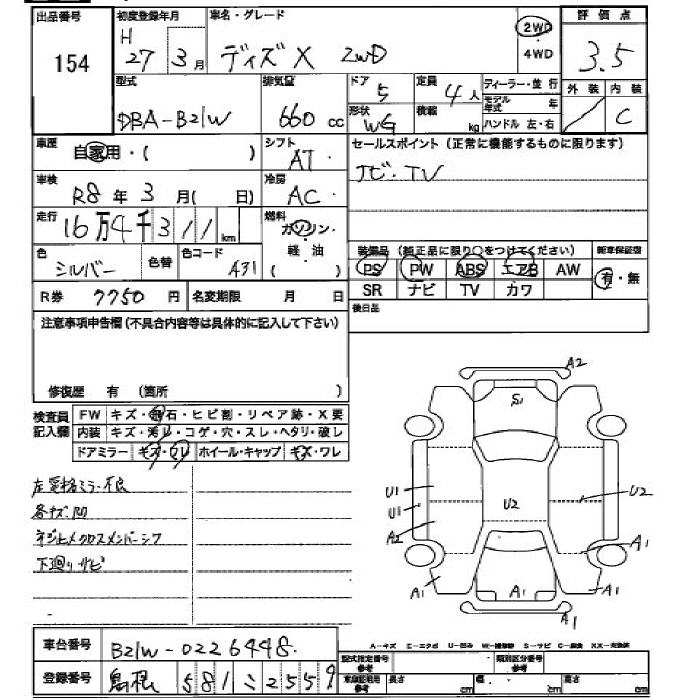 出品番号 初度登録年月 車名・グレード 評価点
154 H 27年 3月 ディズ X 2WD 2WD・4WD 3.5
型式 排気量 ドア 5 定員 4人 ディーラー・並行 外装 内装
DBA-B21W 660cc 形状 WG 積載 kg モデル年式 年 C
ハンドル 左・右
車歴 自家用・( ) シフト AT セールスポイント (正常に機能するものに限ります)
車検 R8年 3月( 日) 冷房 AC ナビ・TV
走行 16万4千311km 燃料 ガソリン・軽・油
色 シルバー 色替 色コード A31 装備品 (純正品に限り○をつけてください) 新車保証書
PS PW ABS エアB AW 有・無
R券 7750円 名変期限 月 日 SR ナビ TV カワ
注意事項申告欄(不具合内容等は具体的に記入して下さい) 後日品
修復歴 有 (箇所 )
検査員記入欄 FW キズ・飛石・ヒビ割・リペア跡・X要
内装 キズ・汚レ・コゲ・穴・スレ・ヘタリ・破レ
ドアミラー キズ・ワレ ホイール・キャップ キズ・ワレ
左電格ミラー不良
各キズ凹
ネジ止メクロスメンバーシフ
下廻りサビ
A2
S1
U1
U1
A2
U2
U2
A1
A1
A1
A1
A1
A-キズ E-エクボ U-凹み W-補修跡 S-サビ C-腐食 XX-交換済
車台番号 B21W-0226448
登録番号 島根 581 ミ 2559
型式指定番号 参考 類別区分番号 参考
車検証記載 参考 長さ cm 幅 cm 高さ cm